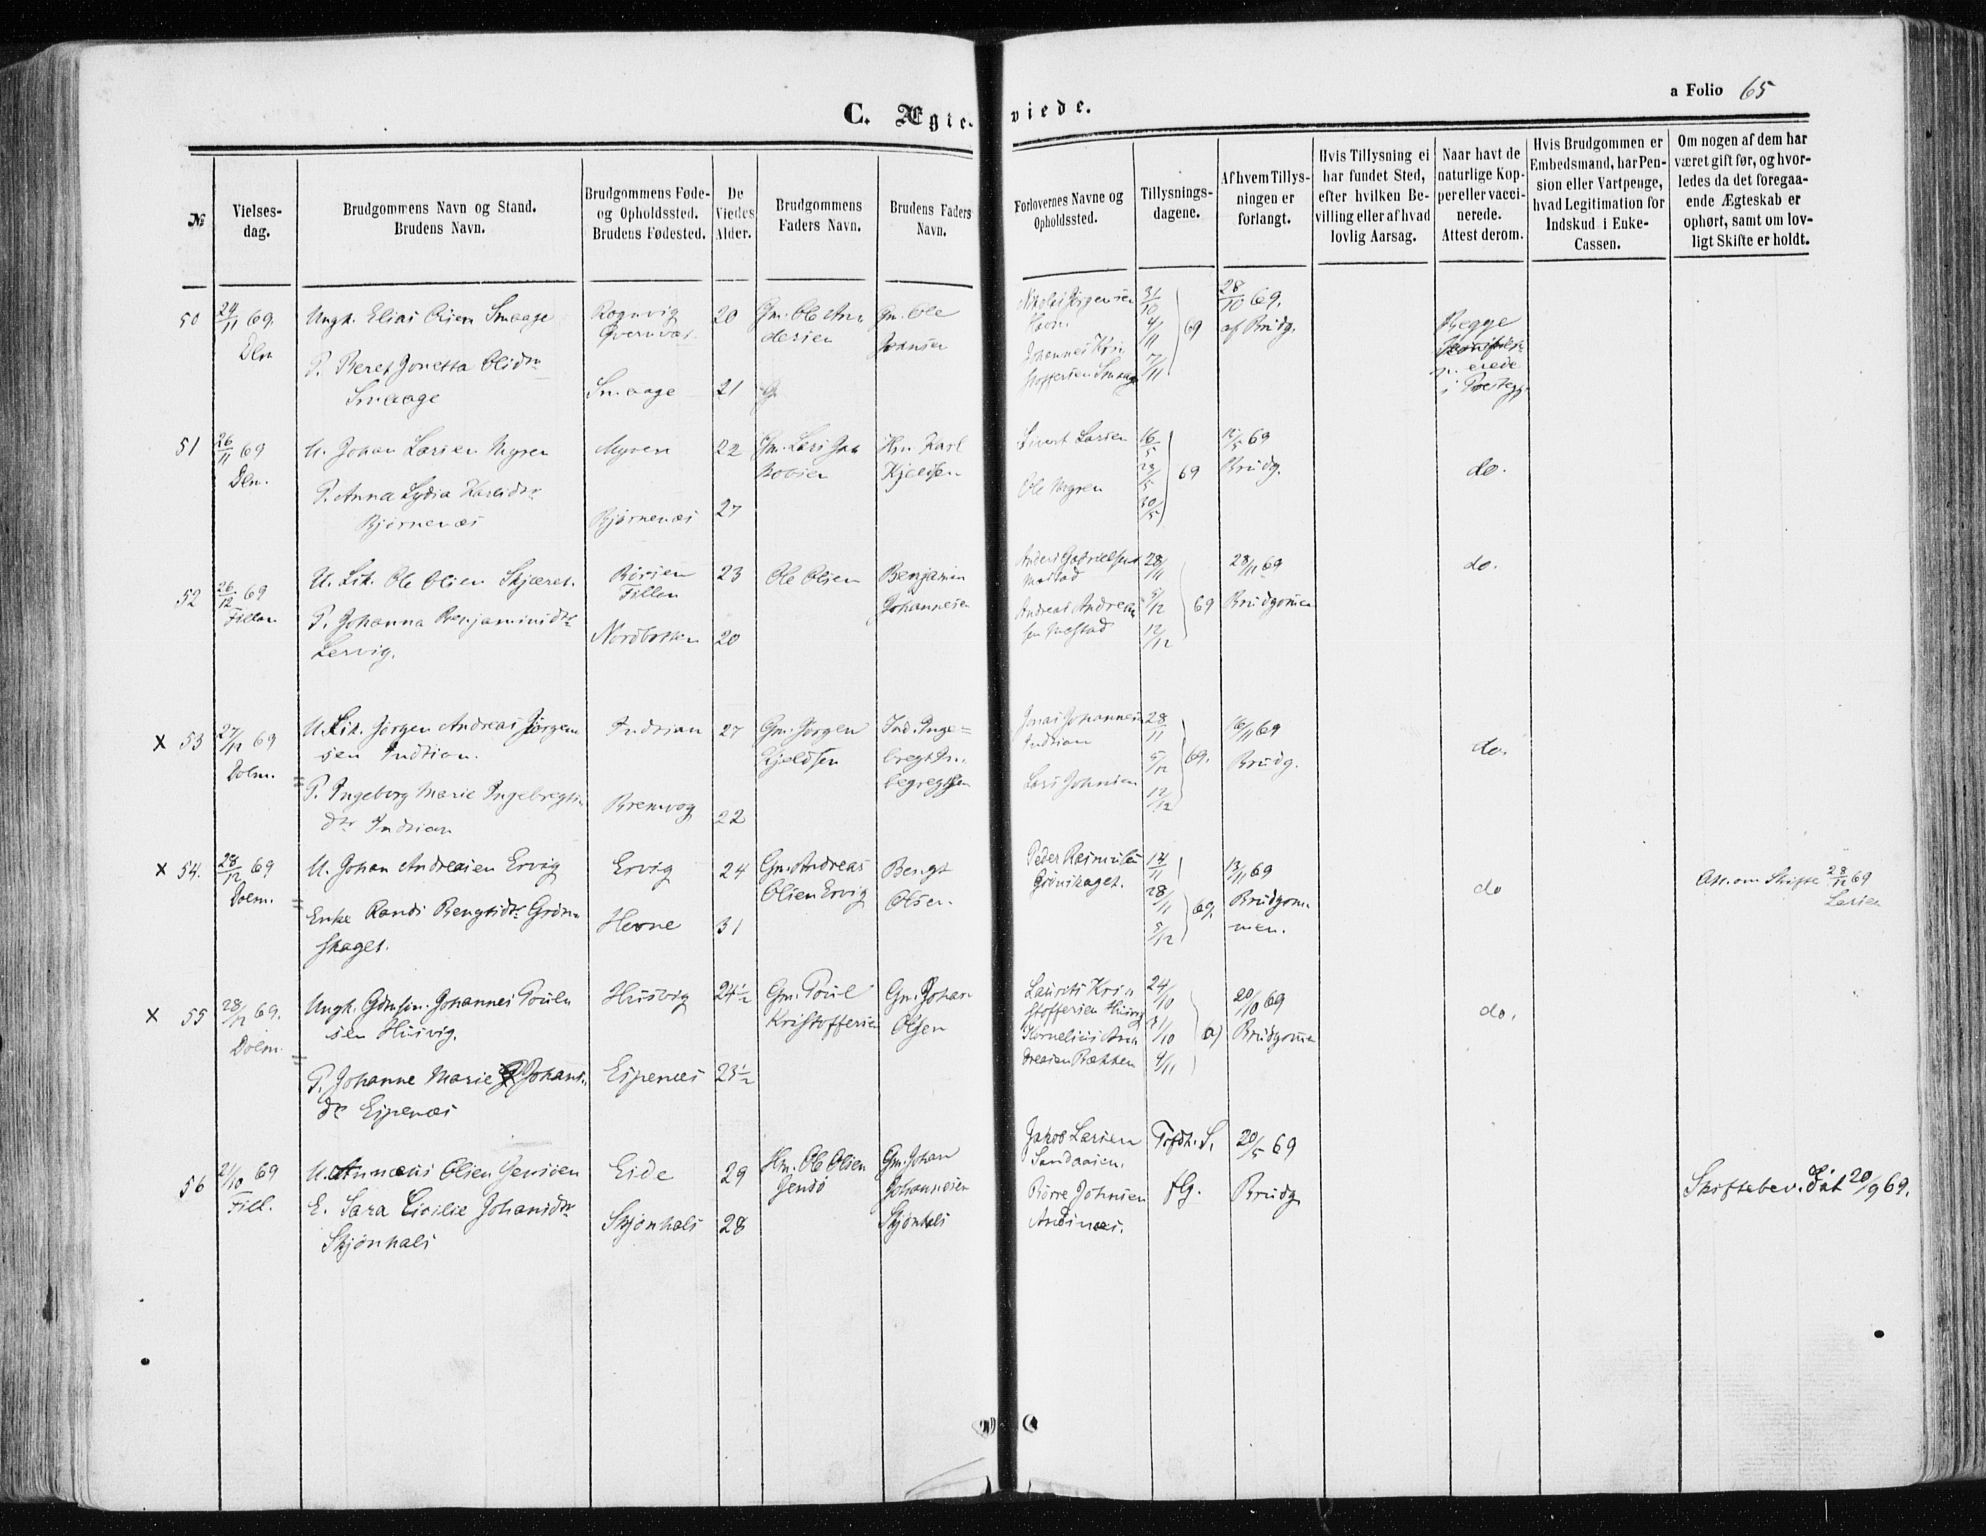 C. Ægte-
viede.
a Folio 65
№
Vielses-
dag.
Brudgommens Navn og Stand.
Brudens Navn.
Brudgommens Føde-
og Opholdssted.
Brudens Fødested.
De
Viedes
Alder.
Brudgommens
Faders Navn.
Brudens Faders
Navn.
Forlovernes Navne og
Opholdssted.
Tillysnings-
dagene.
Af hvem Tillys-
ningen er
forlangt.
Hvis Tillysning ei
har fundet Sted,
efter hvilken Be-
villing eller af hvad
lovlig Aarsag.
Naar havt de
naturlige Kop-
per eller vacci-
nerede.
Attest derom.
Hvis Brudgommen er
Embedsmand, har Pen-
sion eller Vartpenge,
hvad Legitimation for
Indskud i Enke-
Cassen.
Om nogen af dem har
været gift før, og hvor-
ledes da det foregaa-
ende Ægteskab er
ophørt, samt om lov-
ligt Skifte er holdt.
50
24/11 69.
Dln
Ungk. Elias Olsen Smaage
P. Beret Jonetta Olsdtr
Smaage
Smaage
20
21
Gm. Ole An
dersen
Gm. Ole
Johnsen
Nikolai Jørgensen
Havn
Johannes Kri
stoffersen Smaage
31/10
4/11
7/11
69
28/10 69.
af Brudg.
Begge
51
26/11 69
Dln.
U. Johan Larsen Myren
P. Anna Lydia Karlsdtr
Bjørnenæs
Myren
Bjørnenæs
22
27
Gm. Lars Jak
obsen
Hm. Karl
Kjeldsen
Sivert Larsen
Ole Myren
16/5
23/5
30/5
69
12/5 69
Brudg.
do.
52
26/12 69
Fillan
U. Lik. Ole Olsen Skjæret.
P. Johanna Benjaminsdtr
Lervig.
Børsen
Fillan
Nordbotten
23
20
Ole Olsen
Benjamin
Johannesen
Anders Gabrielsen
Mastad
Andreas Andrea
sen Mastad
28/11
5/12
12/12
69
28/11 69
Brudgommen
do.
x 53
27/12 69
Dolm.
U. Lik. Jørgen Andreas Jørgen
sen Indrian.
P. Ingeborg Marie Ingebregts
dtr Indrian
Indrian
Bremvog
27
22
Gm. Jørgen
Kjeldsen
Ind. Inge=
bregt In-
gebregtsen
Jonas Johannesen
Indrian
Lars Johnsen
28/11
5/12
12/12
69.
16/11 69
Brudg.
do.
x 54.
28/12 69
Dolm.
U. Johan Andreasen Ervig
Enke Randi Bengtsdtr Grøn
skaget.
Ervig
Hevne
24
31
Gm. Andreas
Olsen Ervig
Bengt
Olsen.
Peder Rasmussen
Grønskaget.
14/11
28/11
5/12
69.
13/11 69
Brudgom-
men.
do
Att. om Skifte 28/12 69
Larsen
x 55
28/12 69.
Dolm.
Ungk. Gdmsøn. Johannes Poul
sen Husvig.
P. Johanne Marie Johans
dtr Espenæs
Husvig
Espenæs
24½
23½
Gm. Poul
Kristoffersen
Gm. Johan
Olsen
Laurits Kri
stoffersen Husvig
Kornelius An
dreasen Bækken
24/10
31/10
4/11
69
20/10 69
Brudgommen
do.
56
21/10 69
Fill.
Olsen Jensøen
E. Sara Cicilie Johansdtr
Skjønhals
Eide
Skjønhals
29
28
Hm. Ole Olsen
Jensø
Gm. Johan
Johannesen
Skjønhals
Jakob Larsen
Sandaasen.
Børre Johnsen
Andsnæs.
Trdh. S.
flg.
20/5 69
Brudg
Skiftebev. dat 20/9 69.